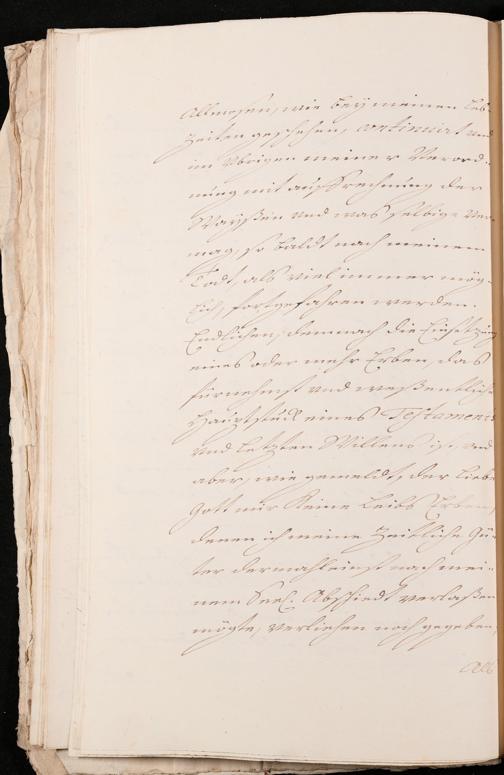 Allmosen, wie bey meinen Leb-
Zeiten geschehen, continuirt und
im Vbrigen meiner Verord-
nung mit auffrechnung der
Wayßen und was selbige ver-
mag, so baldt nach meinem
Todt, als viel immer mög-
lich, fortgefahren werden.
Endlichen, demnach die Einsetzung
eines oder mehr Erben, das
fürnehmst und wesßentliche
Hauptstuck eines Testaments
und Letzten Willens ist, und
aber, wie gemeldt, der Liebe
Gott mir keine Leibs Erben,
denen ich meine Zeitliche Gü-
ter dermahleinst nach mei-
nem Seel. Abschiedt verlaßen
mögte, verliehen noch gegeben,
All